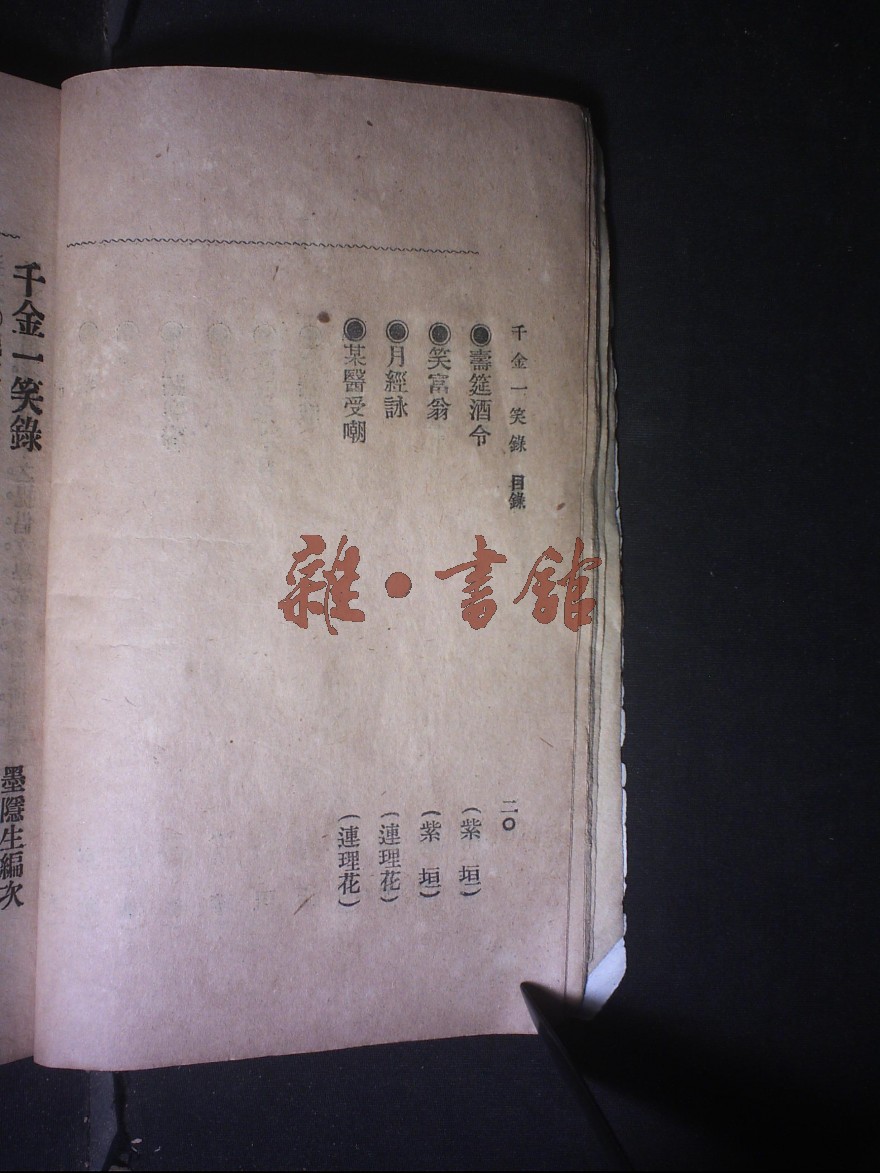 千金一笑錄 目錄 二〇
◉壽筵酒令 (紫垣)
◉笑富翁 (紫垣)
◉月經詠 (連理花)
◉某醫受嘲 (連理花)
千金一笑錄 墨隱生編次
雜・書館